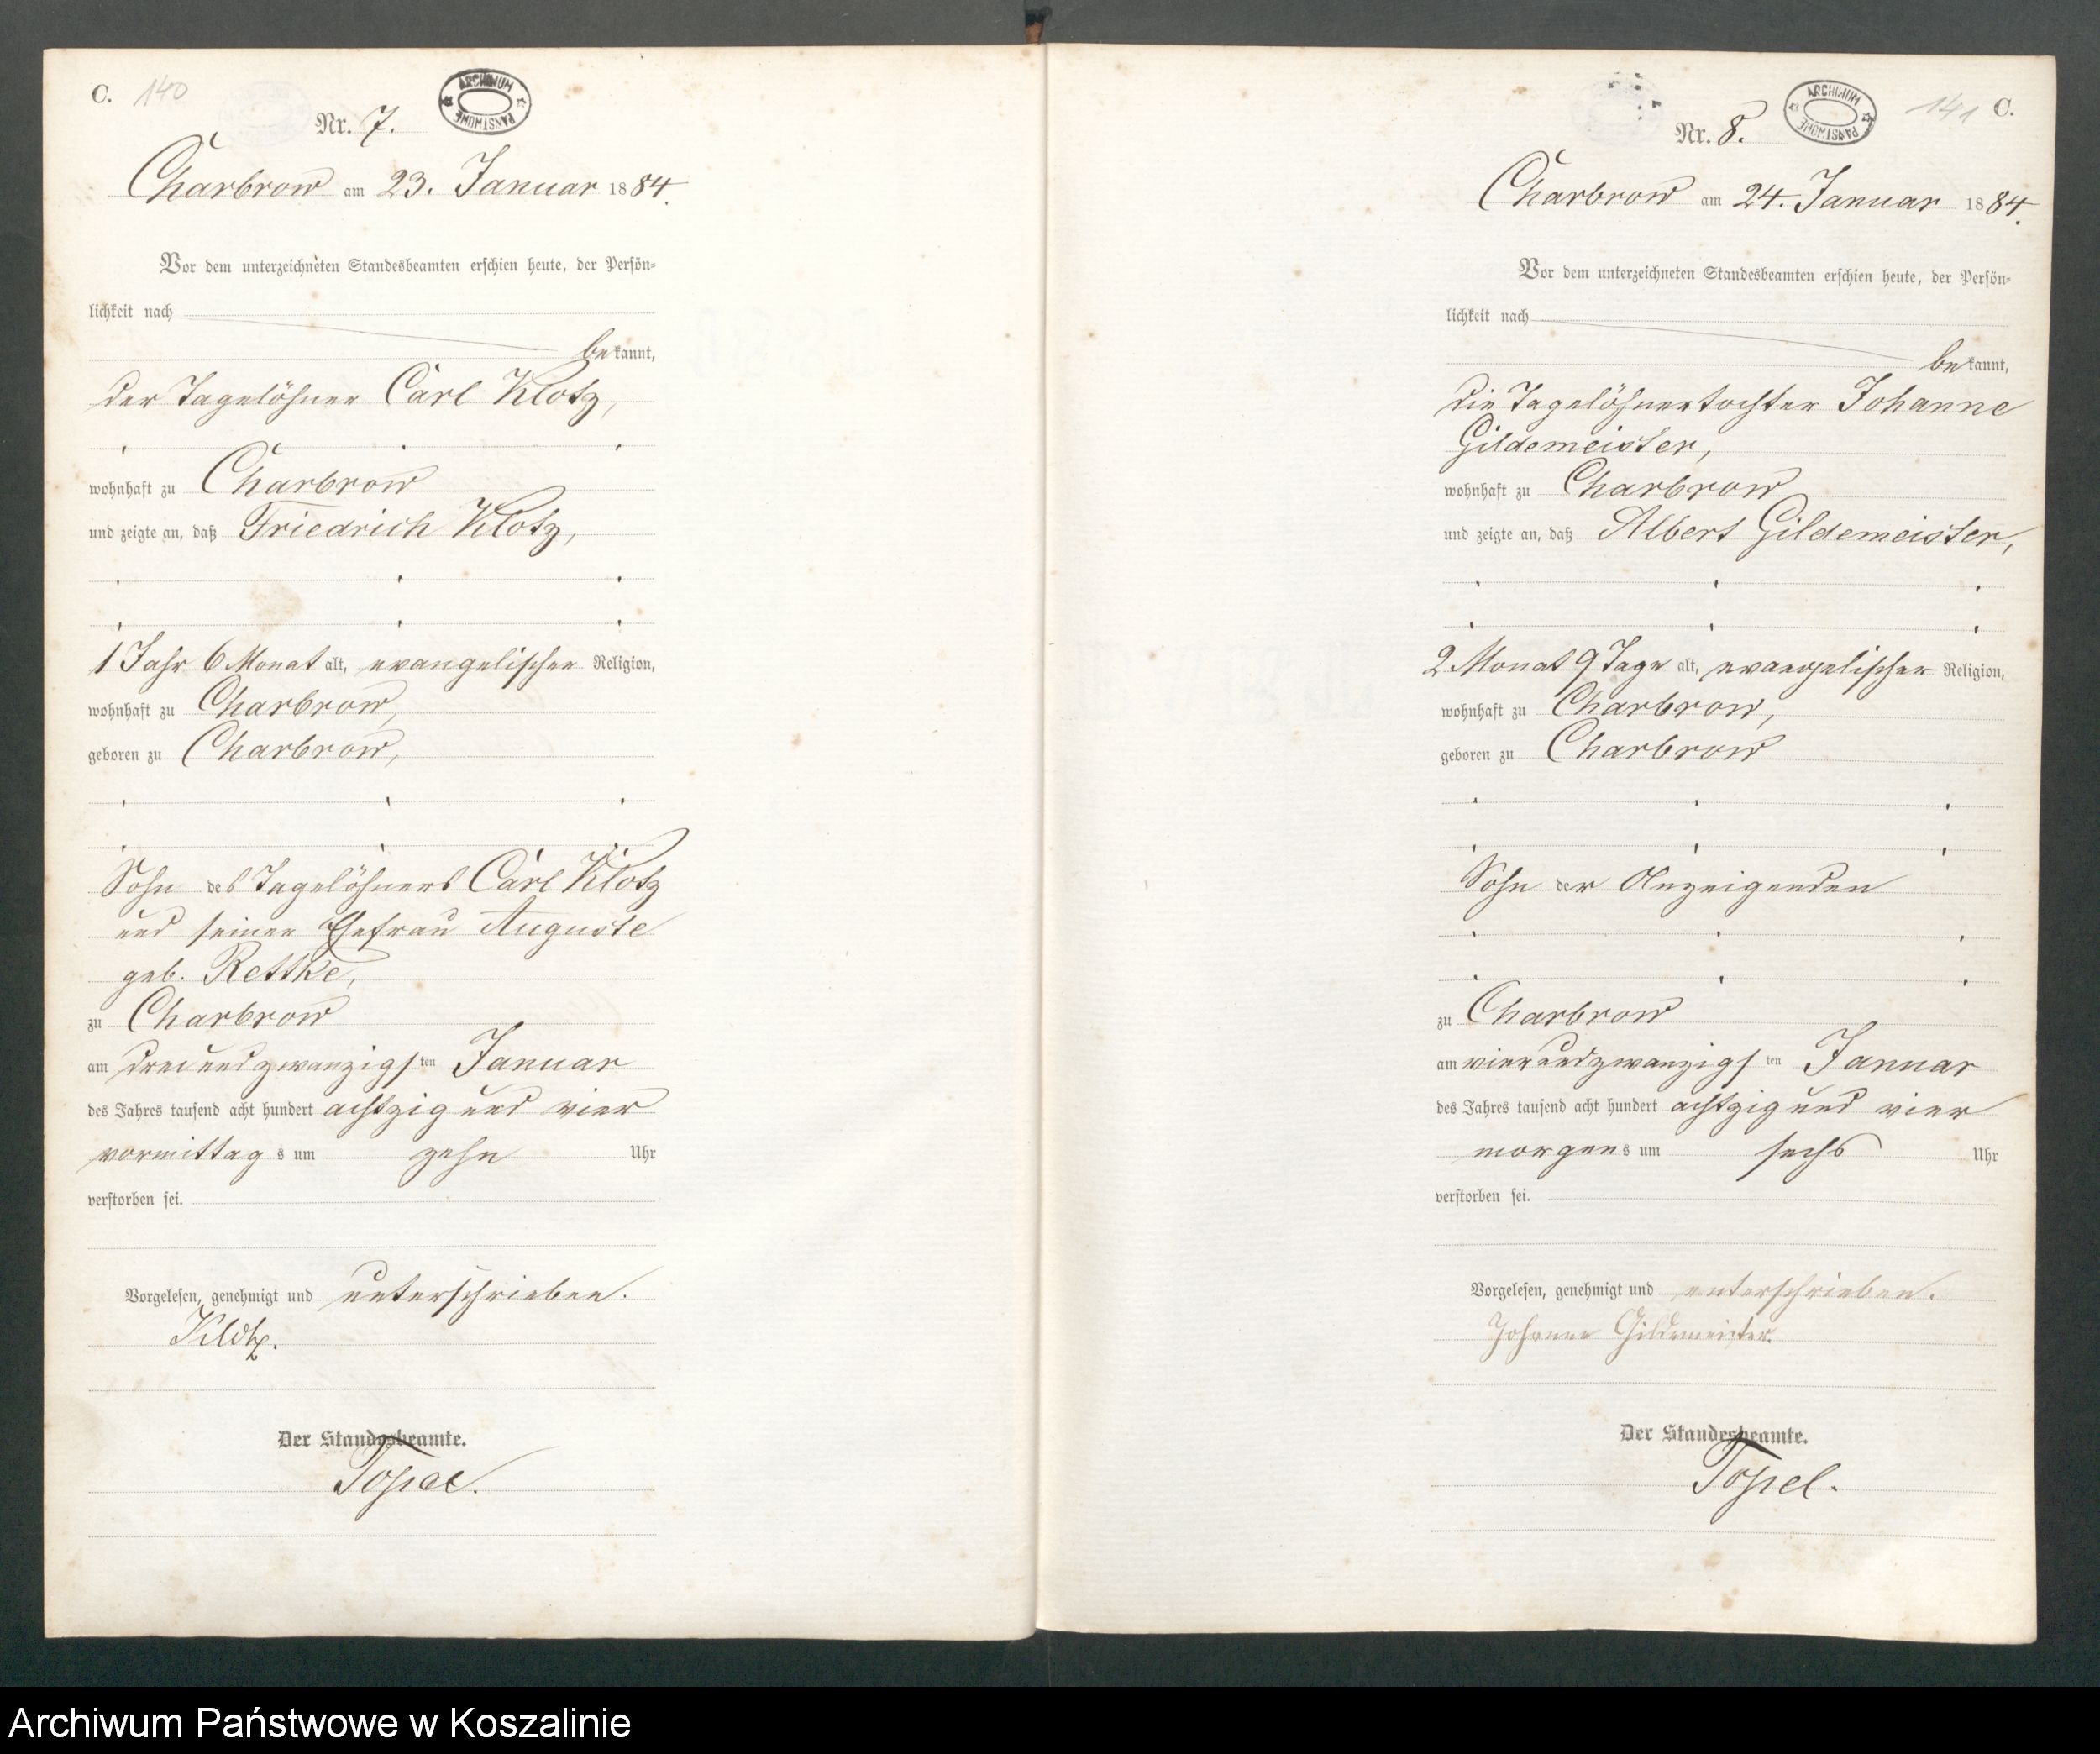 C. 140
ARCHIWUM PAŃSTWOWE
Nr. 7.
Charbrow am 23. Januar 1884.
Vor dem unterzeichneten Standesbeamten erschien heute, der Persön-
lichkeit nach
bekannt,
der Tagelöhner Carl Klotz,
wohnhaft zu Charbrow
und zeigte an, daß Friedrich Klotz,
1 Jahr 6 Monat alt, evangelischer Religion,
wohnhaft zu Charbrow,
geboren zu Charbrow,
Sohn des Tagelöhners Carl Klotz
und seiner Ehefrau Auguste
geb. Rettke,
zu Charbrow
am dreiundzwanzigsten Januar
des Jahres tausend acht hundert achtzig und vier
vormittags um zehn Uhr
verstorben sei.
Vorgelesen, genehmigt und unterschrieben.
Klotz.
Der Standesbeamte.
Topel.
141 C.
ARCHIWUM PAŃSTWOWE
Nr. 8.
Charbrow am 24. Januar 1884.
Vor dem unterzeichneten Standesbeamten erschien heute, der Persön-
lichkeit nach
bekannt,
die Tagelöhnertochter Johanne
Gildemeister,
wohnhaft zu Charbrow
und zeigte an, daß Albert Gildemeister,
2 Monat 9 Tage alt, evangelischer Religion,
wohnhaft zu Charbrow,
geboren zu Charbrow
Sohn der Anzeigenden
zu Charbrow
am vierundzwanzigsten Januar
des Jahres tausend acht hundert achtzig und vier
morgens um sechs Uhr
verstorben sei.
Vorgelesen, genehmigt und unterschrieben.
Johanne Gildemeister.
Der Standesbeamte.
Topel.
Archiwum Państwowe w Koszalinie